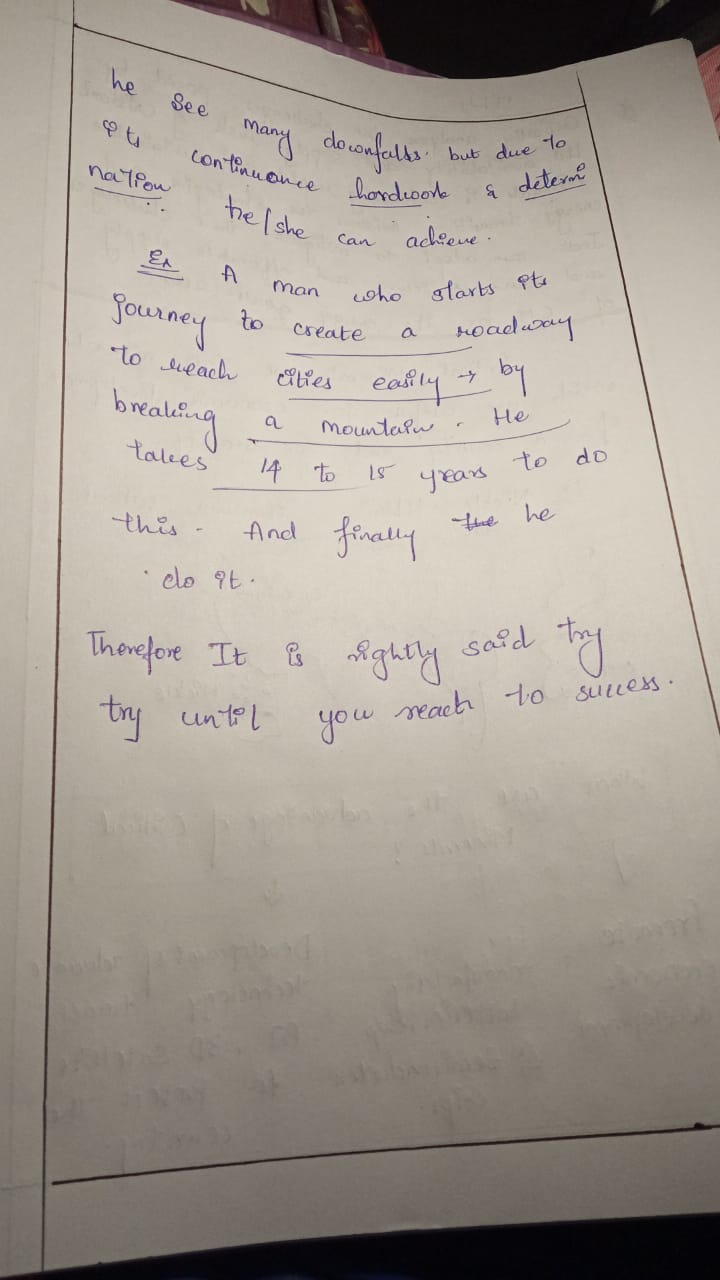 he see many downfalls. but due to
its continuance hardwork & determi
nation he/she can achieve.
Ex A man who starts its
journey to create a roadway
to reach cities easily → by
breaking a mountain. He
takes 14 to 15 years to do
this. And finally the he
do it.
Therefore It is rightly said try
try until you reach to success.